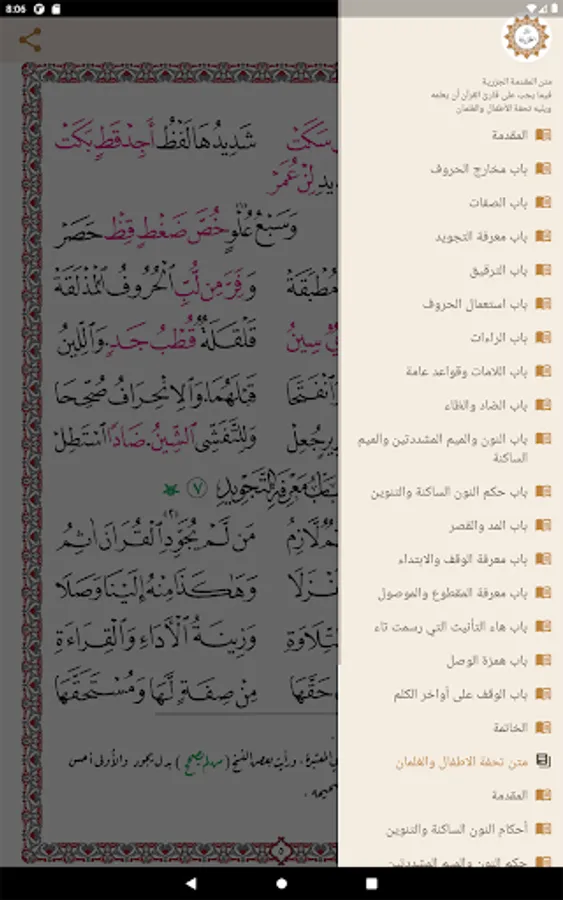 8:06
متن المقدمة الجزرية
فيما يجب على قارئ القرآن أن يعلمه
ويليه تحفة الاطفال والغلمان
المقدمة
باب مخارج الحروف
باب الصفات
باب معرفة التجويد
باب الترقيق
باب استعمال الحروف
باب الراءات
باب اللامات وقواعد عامة
باب الضاد والظاء
باب النون والميم المشددتين والميم
الساكنة
باب حكم النون الساكنة والتنوين
باب المد والقصر
باب معرفة الوقف والابتداء
باب معرفة المقطوع والموصول
باب هاء التأنيث التي رسمت تاء
باب همزة الوصل
باب الوقف على أواخر الكلم
الخاتمة
متن تحفة الاطفال والغلمان
المقدمة
أحكام النون الساكنة والتنوين
حكم النون والميم المشددتين
سَكَتْ شَدِيدُهَا لَفْظُ أَجِدْ قَطٍ بَكَتْ
لِنْ عُمَرْ
وَسَبْعُ عُلْوٍ خُصَّ ضَغْطٍ قِظْ حَصَرْ
مُطْبَقَةْ وَفِرَّ مِن لُّبِّ الْحُرُوفُ الْمُذْلَقَةْ
سِينُ قَلْقَلَةٌ قُطْبُ جَدٍ وَاللِّينُ
وَانْفَتَحَا قَبْلَهُمَا وَالِانْحِرَافُ صُحِّحَا
جُعِلْ وَلِلتَّفَشِّي الشِّينُ ضَادًا اسْتَطِلْ
بَابُ مَعْرِفَةِ التَّجْوِيدِ ٧
لَازِمُ مَن لَّمْ يُجَوِّدِ الْقُرَانَ آثِمُ
وَهَكَذَا مِنْهُ إِلَيْنَا وَصَلَا
التِّلَاوَةِ وَزِينَةُ الْأَدَاءِ وَالْقِرَاءَةِ
حَقَّهَا مِنْ صِفَةٍ لَّهَا وَمُسْتَحَقَّهَا
المعتبرة ، ورأيت بعض النسخ ( ) بدل يجود والأولى أصح
٥